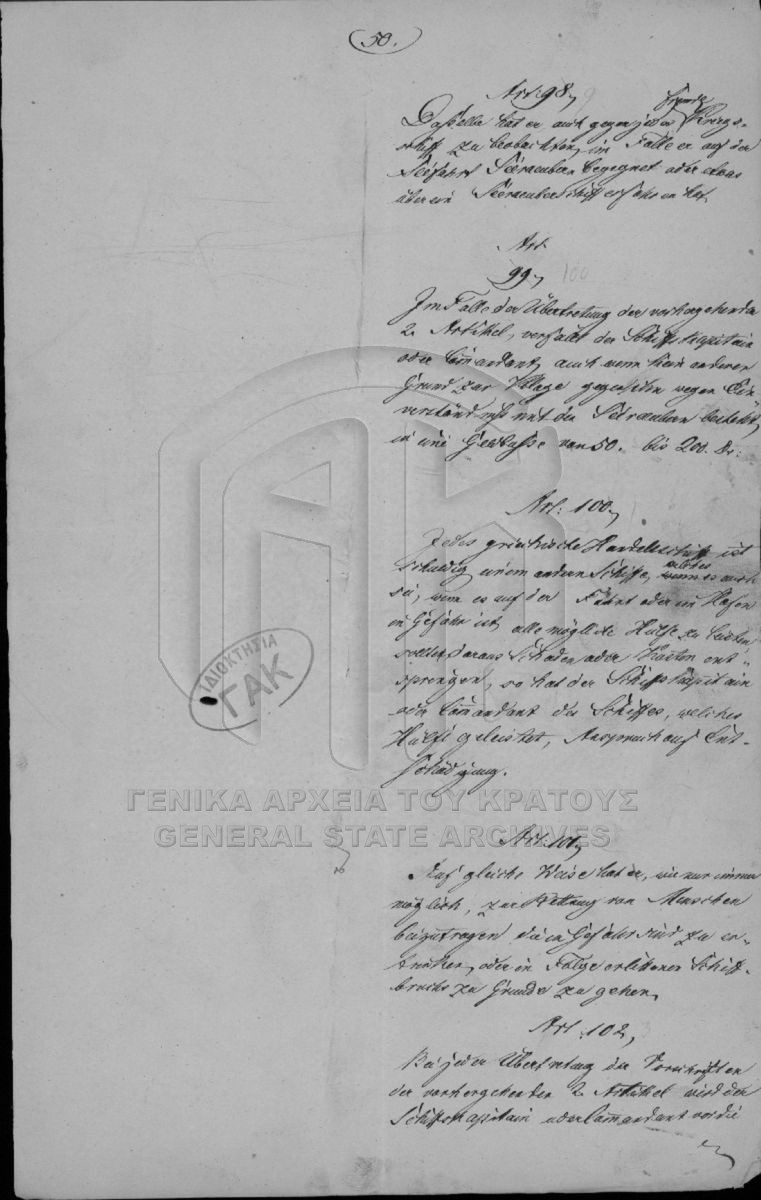 50.
Art: 98,
fremde
Dasselbe hat er auch gegen jedes Kriegs-
schiff zu beobachten, im Falle er auf der
Seefahrt Seeraeubern begegnet oder etwas
über ein Seeraeuberschiff erfahren hat.
Art
99, 100
Im Falle der Übertretung der vorhergehenden
2 Artikel, verfällt der Schiffskapitain
oder Commandant, auch wenn kein anderer
Grund zur Klage gegen ihn wegen Ein-
verständniß mit den Seeraeubern besteht,
in eine Geldbuße von 50. bis 200. Dr:
Art: 100,
Jedes griechische Handelsschiff ist
schuldig einem andern Schiffe, welches
wenn es auch
sei, wenn es auf der Fahrt oder im Hafen
in Gefahr ist, alle mögliche Hülfe zu leisten
sollte daraus Schaden oder Kosten ent-
springen, so hat der Schiffskapitain
oder Commandant des Schiffes, welches
Hülfe geleistet, Anspruch auf Ent-
schädigung.
Art: 101,
Auf gleiche Weise hat er, wie nur immer
möglich, zur Rettung von Menschen
beizutragen die in Gefahr sind zu er-
trinken, oder in Folge erlittenen Schiff-
bruchs zu Grunde zu gehen,
Art. 102,
Bei jeder Übertretung der Vorschriften
der vorhergehenden 2 Artikel wird der
Schiffskapitain oder Commandant vor die
ΙΔΙΟΚΤΗΣΙΑ
ΓΑΚ
ΓΕΝΙΚΑ ΑΡΧΕΙΑ ΤΟΥ ΚΡΑΤΟΥΣ
GENERAL STATE ARCHIVES